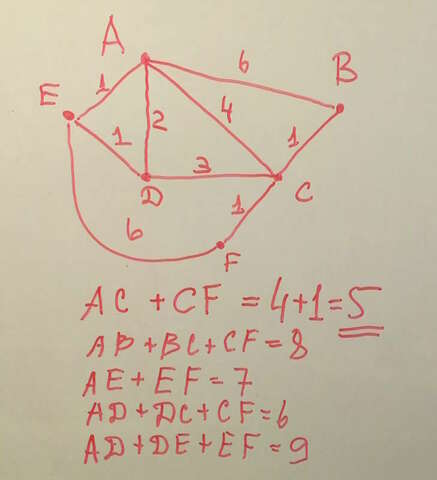 A
6
B
E
1
4
1
2
1
3
D
C
1
6
F
AC + CF = 4+1=5
AB+BC+CF=8
AE+EF=7
AD+DC+CF=6
AD+DE+EF=9